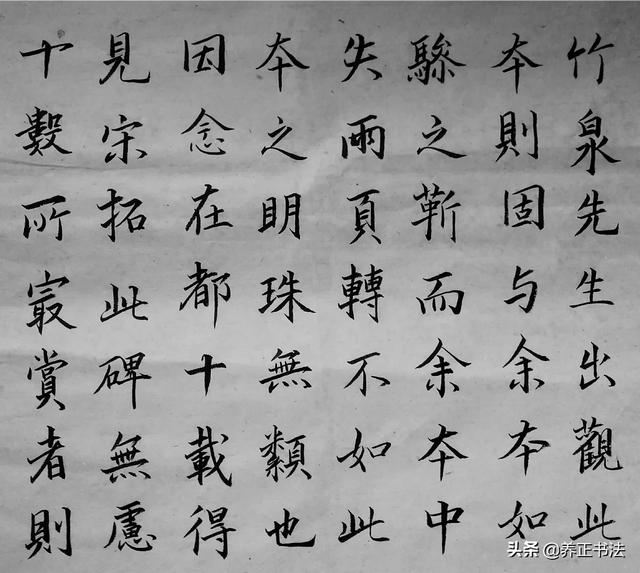 竹泉先生出觀此
本則固与余本如
驂之靳而余本中
失兩頁轉不如此
本之明珠無纇也
因念在都十載得
見宋拓此碑無慮
十數所寂賞者則
头条 @养正书法